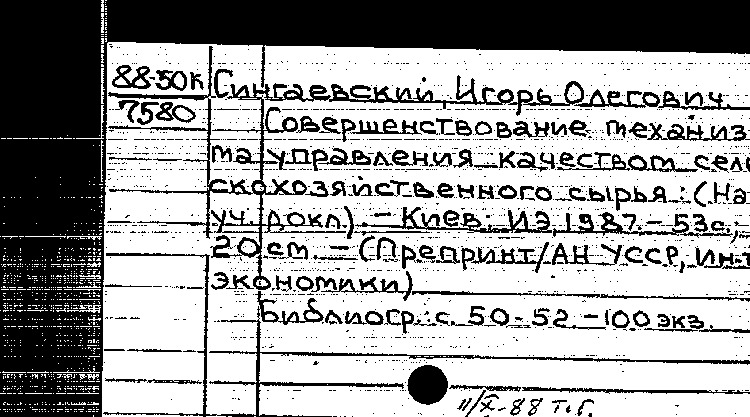 88-50К Сингаевский, Игорь Олегович.
7580
Совершенствование механиз
ма управления качеством сель
скохозяйственного сырья : (На
уч. докл). - Киев: ИЭ, 1987. - 53с.;
20 см. - (Препринт/АН УССР, Ин-т
экономики)
Библиогр.: с. 50-52. - 100 экз.
11/X-88 т.г.